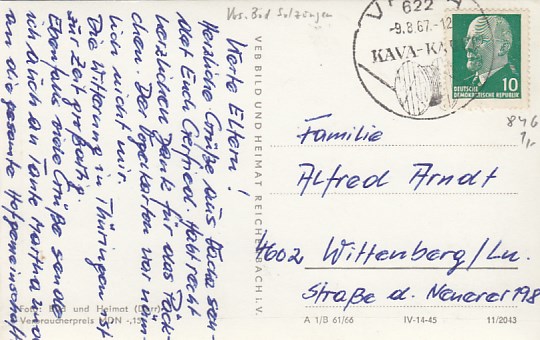 Vbs. Bad Salzungen
622
-9.8.67.-12
KAVA-KA
10
DEUTSCHE
DEMOKRATISCHE REPUBLIK
846
1,-
Werte Eltern!
Herzliche Grüße aus Vacha sen-
det Euch Gerfried. Habt recht
herzlichen Dank für das Päck-
chen. Der Regenkarton war näm-
lich nicht mir.
Die Witterung in Thüringen ist
zur Zeit großartig.
Ebenfalls viele Grüße sende
ich auch an Tante Martha und
an die gesamte Hofgemeinschaft
VEB BILD UND HEIMAT REICHENBACH I.V.
Familie
Alfred Arndt
4602 Wittenberg/Lu.
Straße d. Neuerer 198
Foto: Bild und Heimat
Verbraucherpreis MDN -,15
A 1/B 61/66 IV-14-45 11/2043